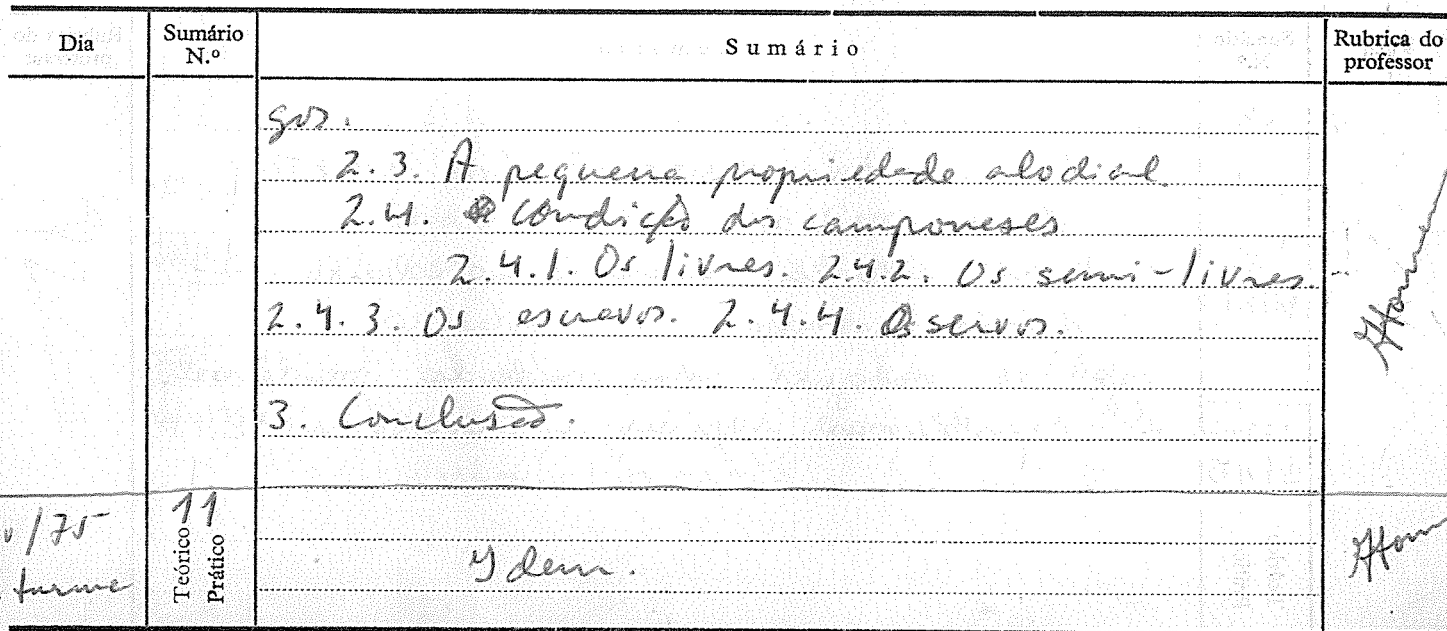 Dia
Sumário
N.º
Sumário
Rubrica do
professor
gos.
2.3. A pequena propriedade alodial.
2.4. Condição dos camponeses
2.4.1. Os livres. 2.4.2. Os semi-livres.
2.4.3. Os escravos. 2.4.4. Os servos.
3. Conclusão.
/75
turma
11
Teórico
Prático
Idem.